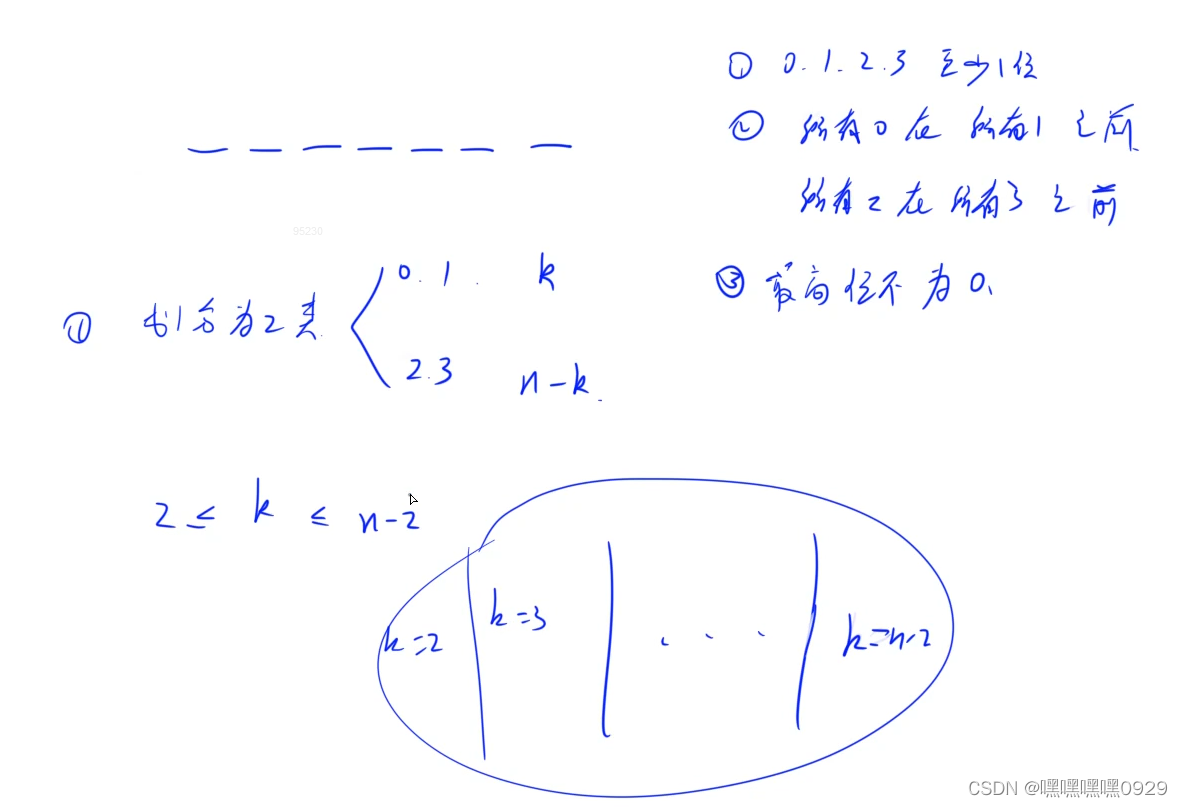 ① 0.1.2.3 至少1位
② 所有0在所有1之前
所有2在所有3之前
③ 最高位不为0.
95230
① 划分为2类
0.1. k
2.3 n-k.
2 ≤ k ≤ n-2
k=2
k=3
...
k=n-2
CSDN @嘿嘿嘿嘿0929